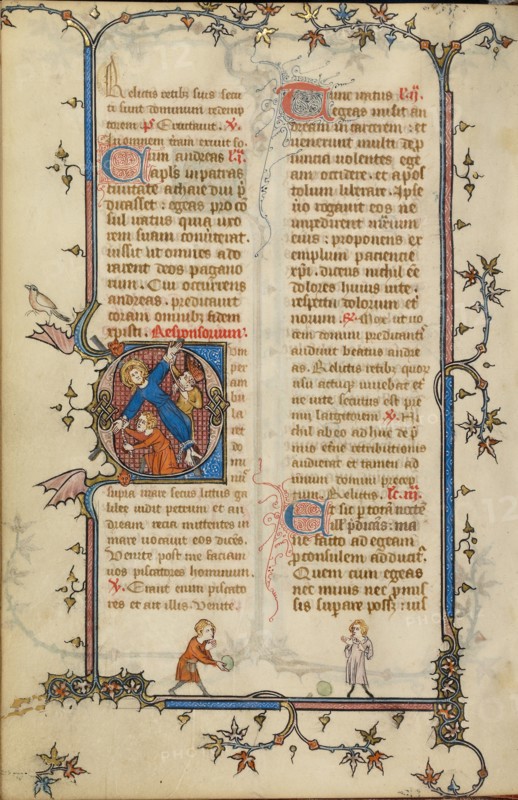 Relictis retibus suis secu
ti sunt dominum redemp
torem ps Exultavit. V.
In omnem terram exivit so
Cum andreas l.i.
apls in patras
civitate achaie diu p
dicasset : egeas pro con
sul iratus quia uxo
rem suam converterat.
iussit ut omnes ado
rarent deos pagano
rum. Cui occurrens
andreas. predicavit
coram omnibus fidem
xpisti. Responsorium.
Dum
per
am
bu
la
ret
do
mi
nus
supra mare secus littus ga
lilee vidit petrum et an
dream recia mittentes in
mare vocavit eos dices.
Venite post me faciam
vos piscatores hominum.
V. Erant enim piscato
res et ait illis. Venite.
Tunc iratus l.ii.
egeas misit an
dream in carcerem : et
venerunt multi de p
vincia volentes ege
am occidere. et apos
tolum liberare. Ipse
vero rogavit eos ne
impedirent martirium
eius : proponens ex
emplum paciencie
xpi. dicens nichil ee
dolores huius vite.
respectu dolorum et
norum. R. Mox ut vo
cem domini predicantis
audivit beatus andre
as. Relictis retibus quor
usu actuque vivebat et
ne vite secutus est pre
mia largitorem. V. Ni
chil ab eo adhuc de p
mio eterne retributionis
audierat et tamen ad
unum domini precep
tum. Relictis. lc.iii.
Et sic per totam noctem
ill' pdicas : ma
ne facto ad egeam
proconsulem adducitur.
Quem cum egeas
nec minis nec pmis
sis supare posset : ius